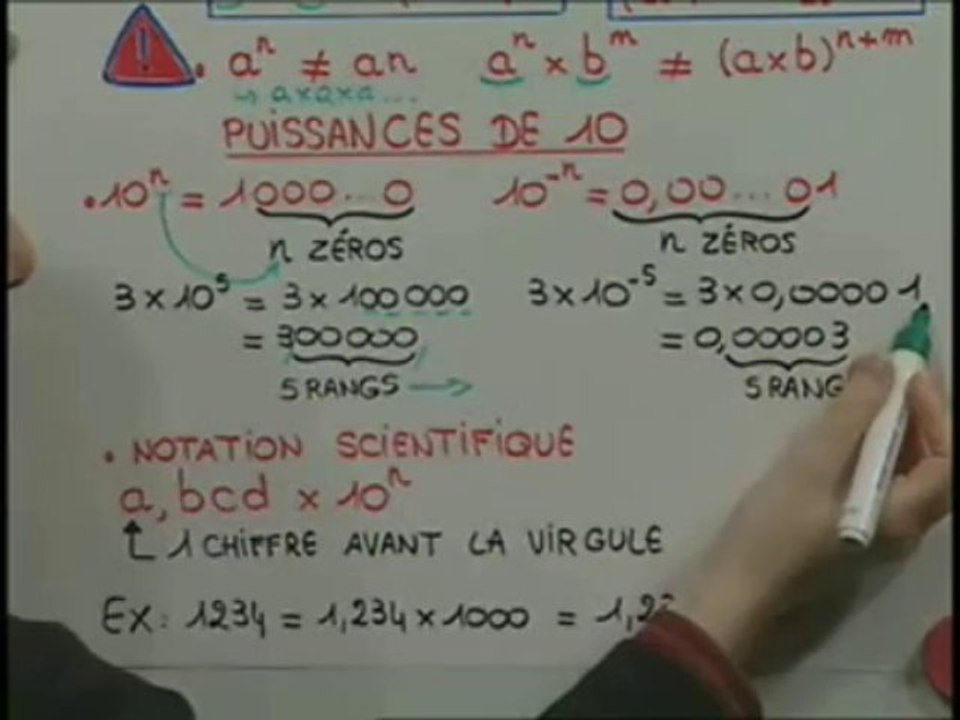 ! • aⁿ ≠ an aⁿ × bᵐ ≠ (a×b)ⁿ⁺ᵐ
↪ a×a×a...
PUISSANCES DE 10
• 10ⁿ = 1000...0 10⁻ⁿ = 0,00...01
n ZÉROS n ZÉROS
3 × 10⁵ = 3 × 100 000 3 × 10⁻⁵ = 3 × 0,0000 1
= 300 000 = 0,00003
5 RANGS → 5 RANG
• NOTATION SCIENTIFIQUE
a, bcd × 10ⁿ
1 CHIFFRE AVANT LA VIRGULE
EX: 1234 = 1,234 × 1000 = 1,23